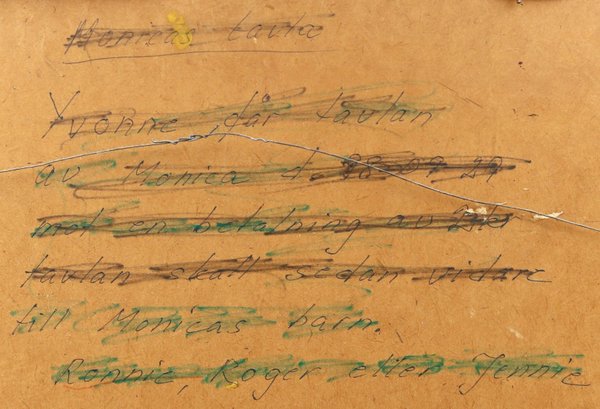 Monicas tavla
Yvonne får tavlan
av Monica d. 98 09 29
mot en betalning av
tavlan skall sedan vidare
till Monicas barn.
Ronnie, Roger eller Jennie